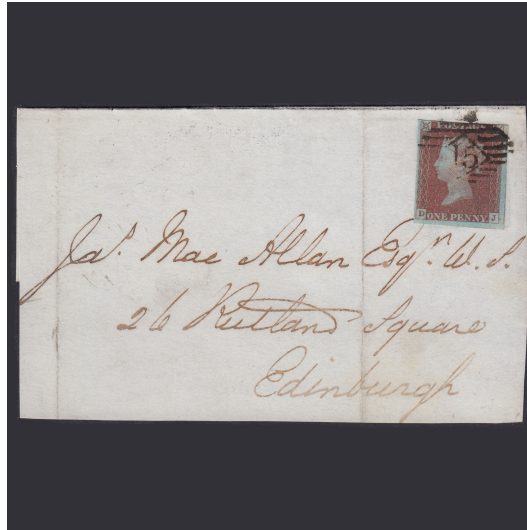 POSTAGE
75
D J
ONE PENNY
Jas. Mac Allan Esqr. W. S.
26 Rutland Square
Edinburgh